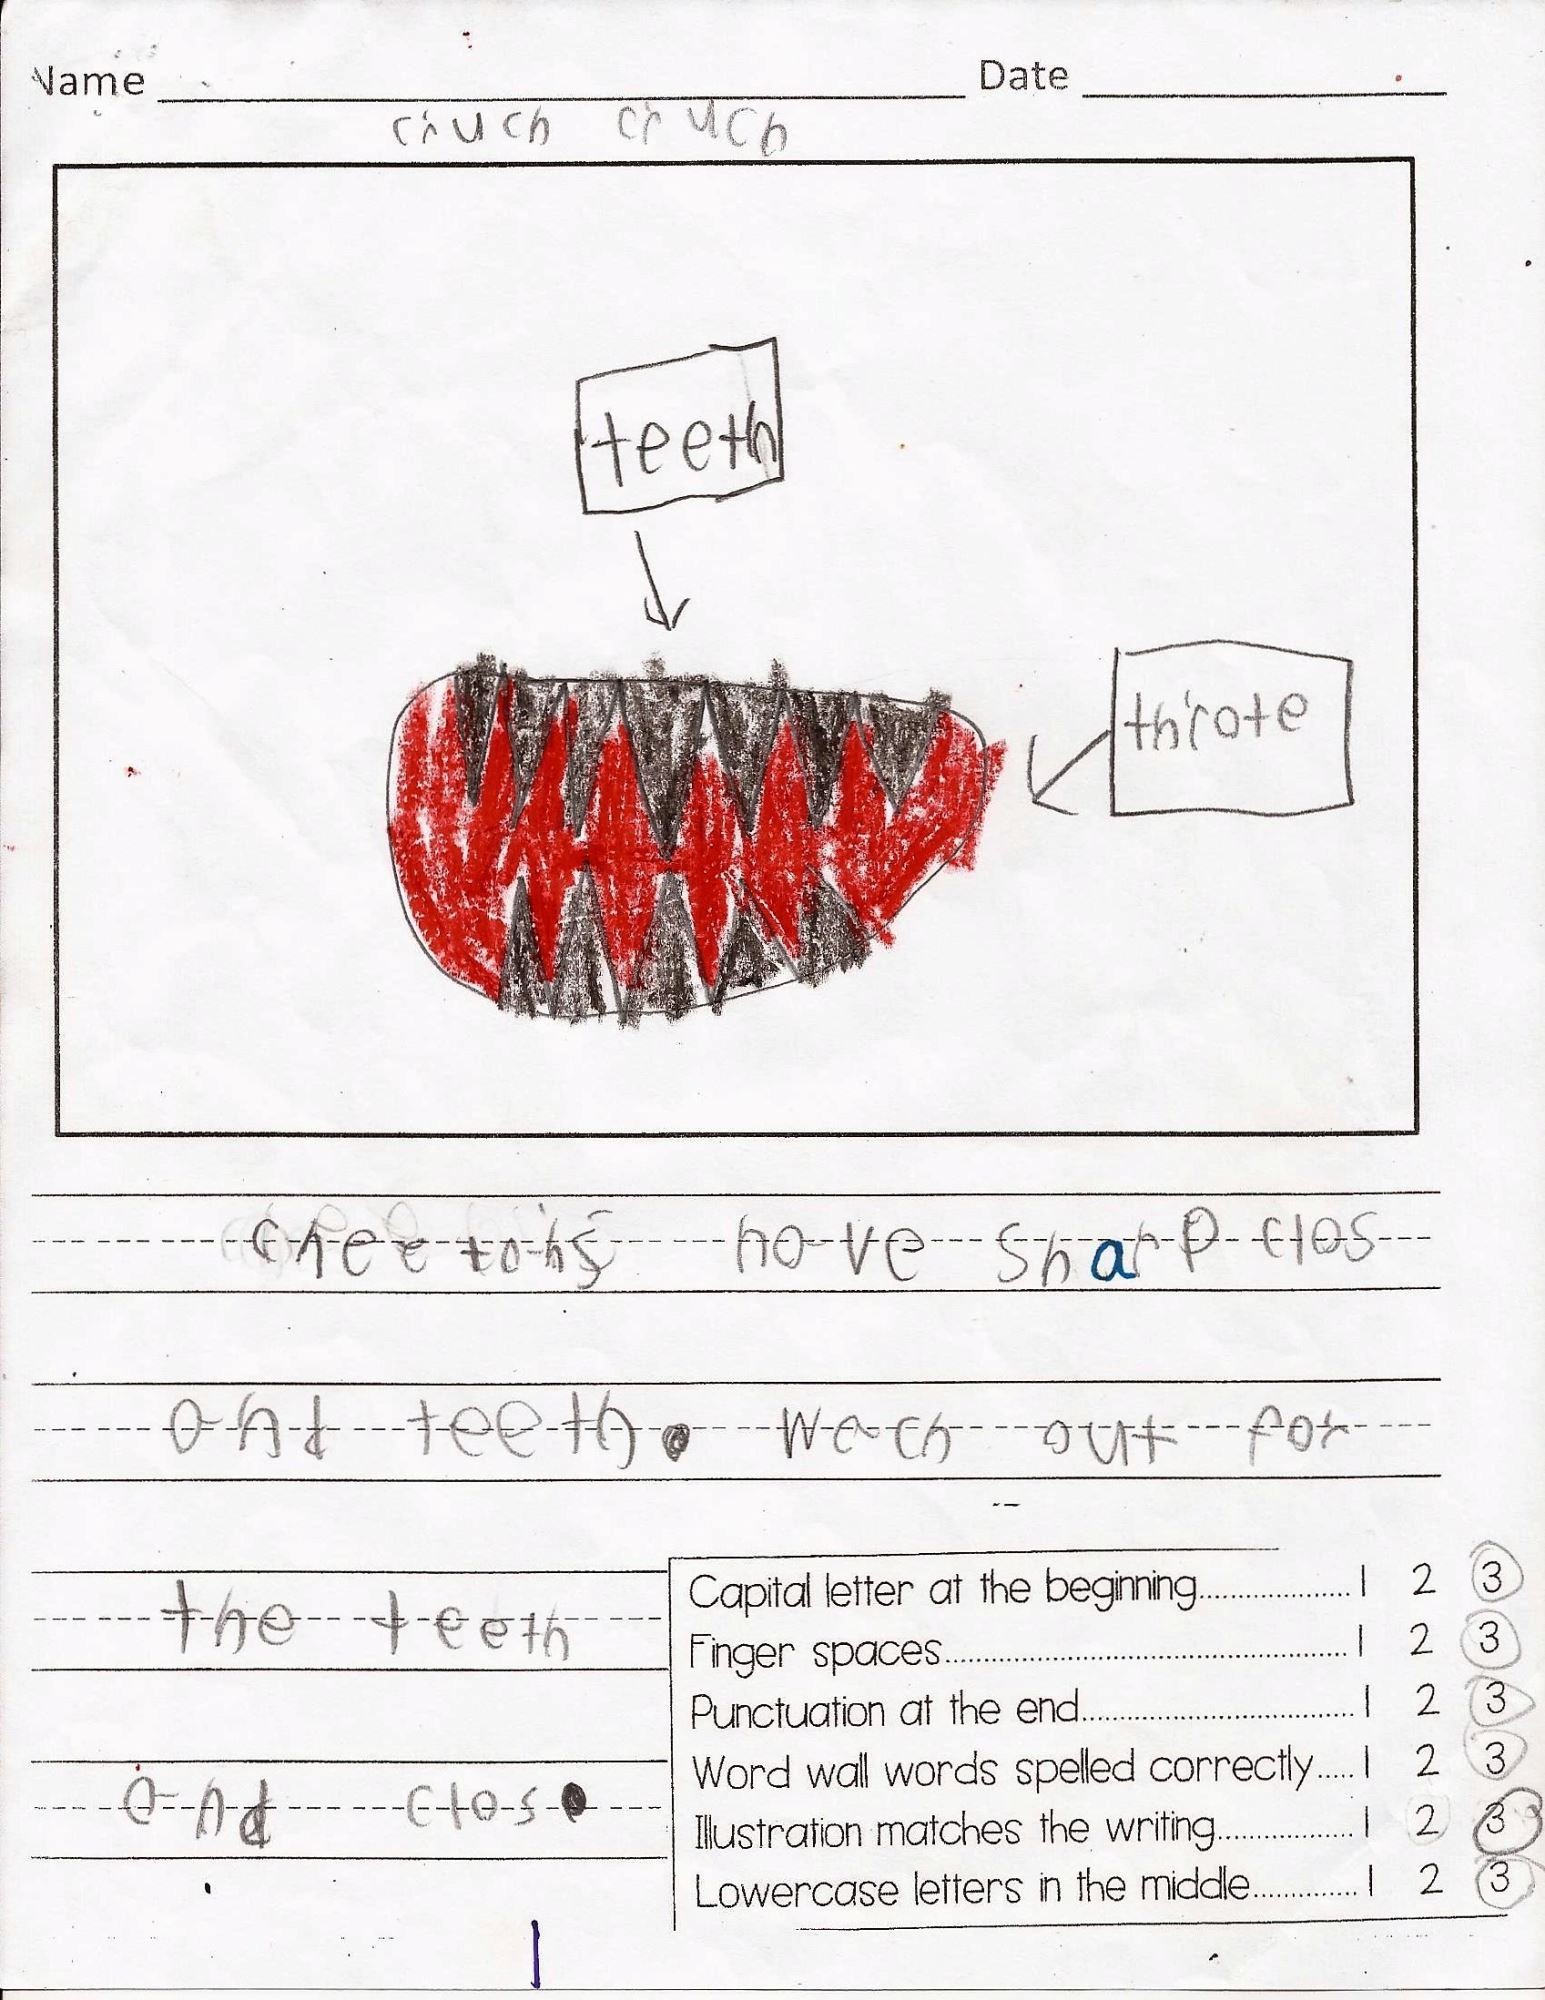 Name Date
cruch cruch
teeth
throte
cheetahs have sharp clos
and teeth. Wach out for
the teeth
and clos.
Capital letter at the beginning 1 2 3
Finger spaces 1 2 3
Punctuation at the end 1 2 3
Word wall words spelled correctly 1 2 3
Illustration matches the writing 1 2 3
Lowercase letters in the middle 1 2 3